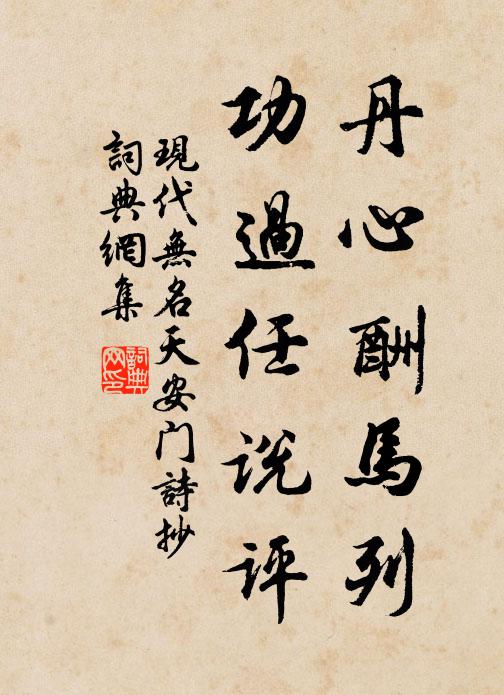 丹心酬馬列
功過任説評
現代無名天安门詩抄
詞典網集
詞典网印